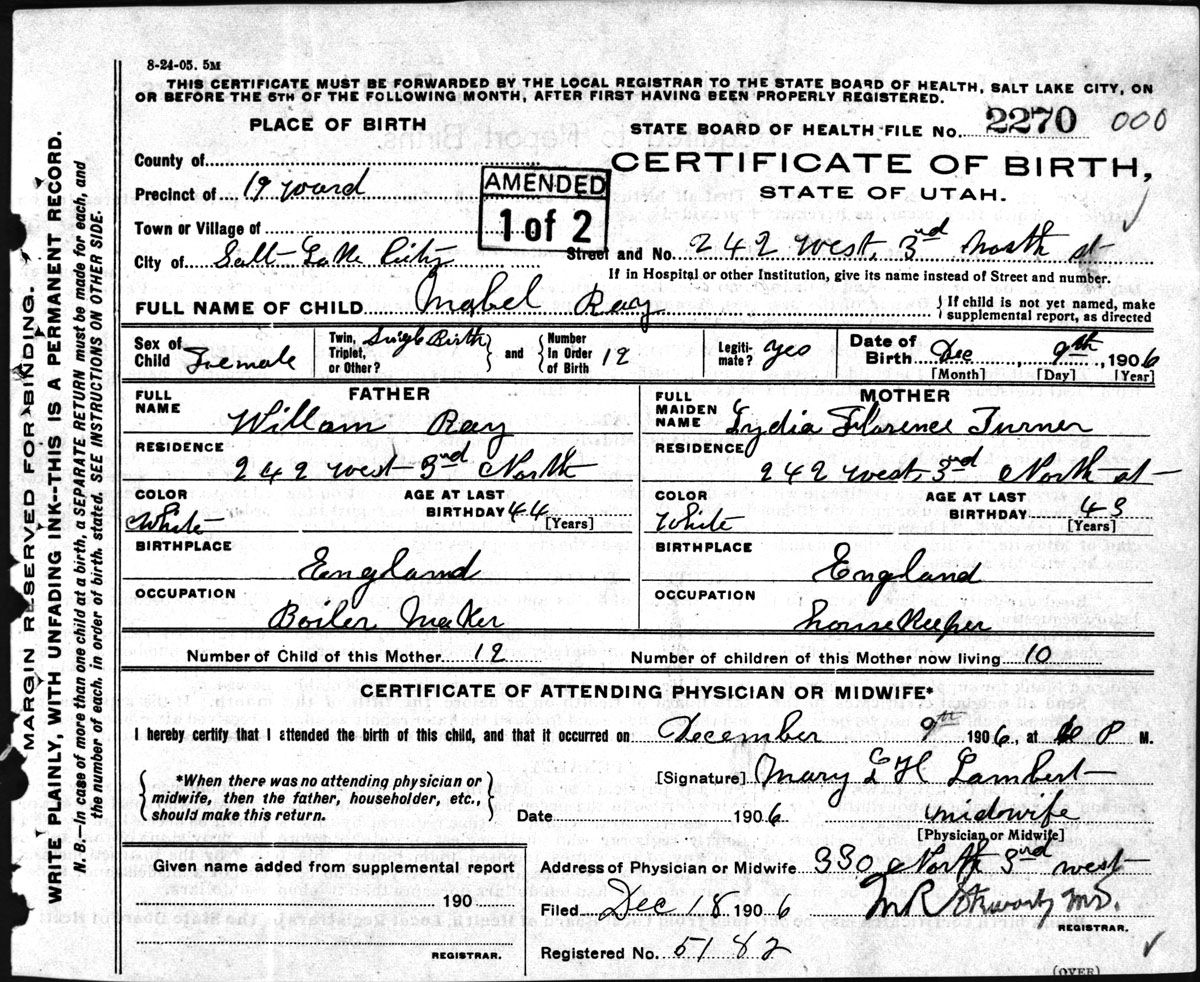 8-24-05. 5M
THIS CERTIFICATE MUST BE FORWARDED BY THE LOCAL REGISTRAR TO THE STATE BOARD OF HEALTH, SALT LAKE CITY, ON
OR BEFORE THE 5TH OF THE FOLLOWING MONTH, AFTER FIRST HAVING BEEN PROPERLY REGISTERED.
PLACE OF BIRTH
STATE BOARD OF HEALTH FILE No. 2270 000
County of
CERTIFICATE OF BIRTH,
STATE OF UTAH.
Precinct of 19 ward
AMENDED
1 of 2
Town or Village of
City of Salt Lake City
Street and No 242 west, 3rd North st
If in Hospital or other Institution, give its name instead of Street and number.
FULL NAME OF CHILD Mabel Ray
If child is not yet named, make
supplemental report, as directed
Sex of Child Female
Twin, Triplet, or Other? Single Birth
and Number In Order of Birth 12
Legiti-mate? yes
Date of Birth Dec 9th, 1906
[Month] [Day] [Year]
FATHER
FULL NAME William Ray
RESIDENCE
242 west 3rd North
COLOR White
AGE AT LAST BIRTHDAY 44 [Years]
BIRTHPLACE
England
OCCUPATION
Boiler Maker
MOTHER
FULL MAIDEN NAME Lydia Florence Turner
RESIDENCE
242 west, 3rd North st
COLOR White
AGE AT LAST BIRTHDAY 43 [Years]
BIRTHPLACE
England
OCCUPATION
house Keeper
Number of Child of this Mother 12
Number of children of this Mother now living 10
CERTIFICATE OF ATTENDING PHYSICIAN OR MIDWIFE*
I hereby certify that I attended the birth of this child, and that it occurred on December 9th 1906, at P M.
*When there was no attending physician or
midwife, then the father, householder, etc.,
should make this return.
[Signature] Mary E H Lambert
Date 1906 midwife
[Physician or Midwife]
Given name added from supplemental report
190
REGISTRAR.
Address of Physician or Midwife 330 North 3rd west
Filed Dec 18 1906
REGISTRAR.
Registered No. 5182
(OVER)
MARGIN RESERVED FOR BINDING.
WRITE PLAINLY, WITH UNFADING INK--THIS IS A PERMANENT RECORD.
N. B.—In case of more than one child at a birth, a SEPARATE RETURN must be made for each, and
the number of each, in order of birth, stated. SEE INSTRUCTIONS ON OTHER SIDE.